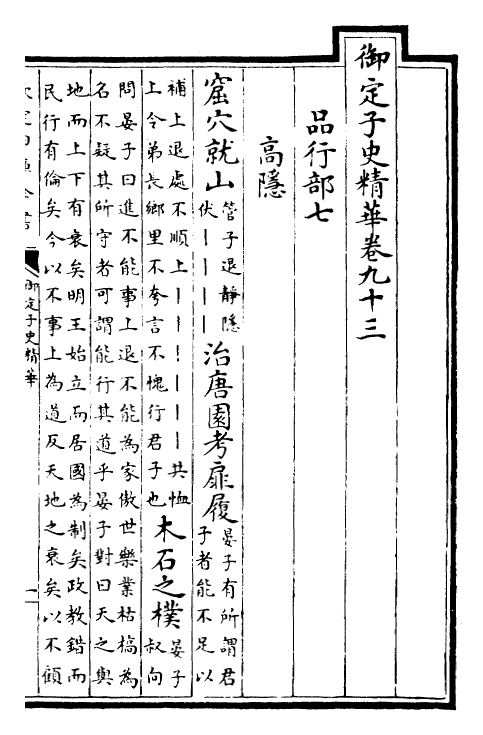 御定子史精華卷九十三
品行部七
高隱
窟穴就山管子退靜隱伏丨丨丨丨治唐園考扉履晏子有所謂君子者能不足以
補上退處不順上丨丨丨丨丨丨共恤上令弟長鄉里不夸言不愧行君子也木石之樸晏子叔向
問晏子曰進不能事上退不能為家傲世樂業枯槁為
名不疑其所守者可謂能行其道乎晏子對曰天之與
地而上下有衰矣明王始立而居國為制矣政教錯而
民行有倫矣今以不事上為道反天地之衰矣以不顧
御定子史精華
一